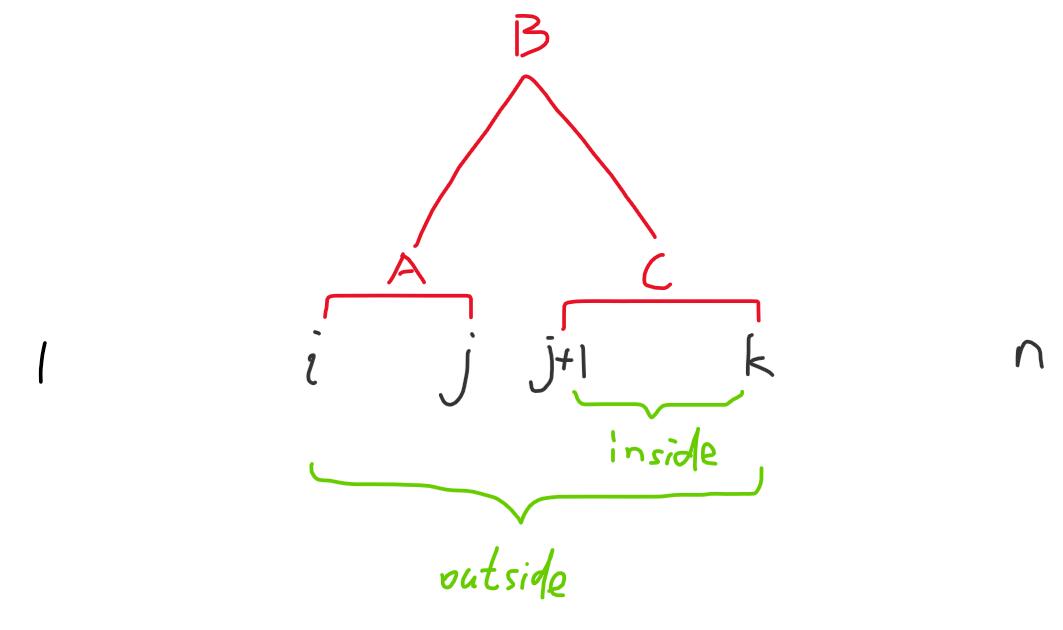 B
A C
1 i j j+1 k n
inside
outside